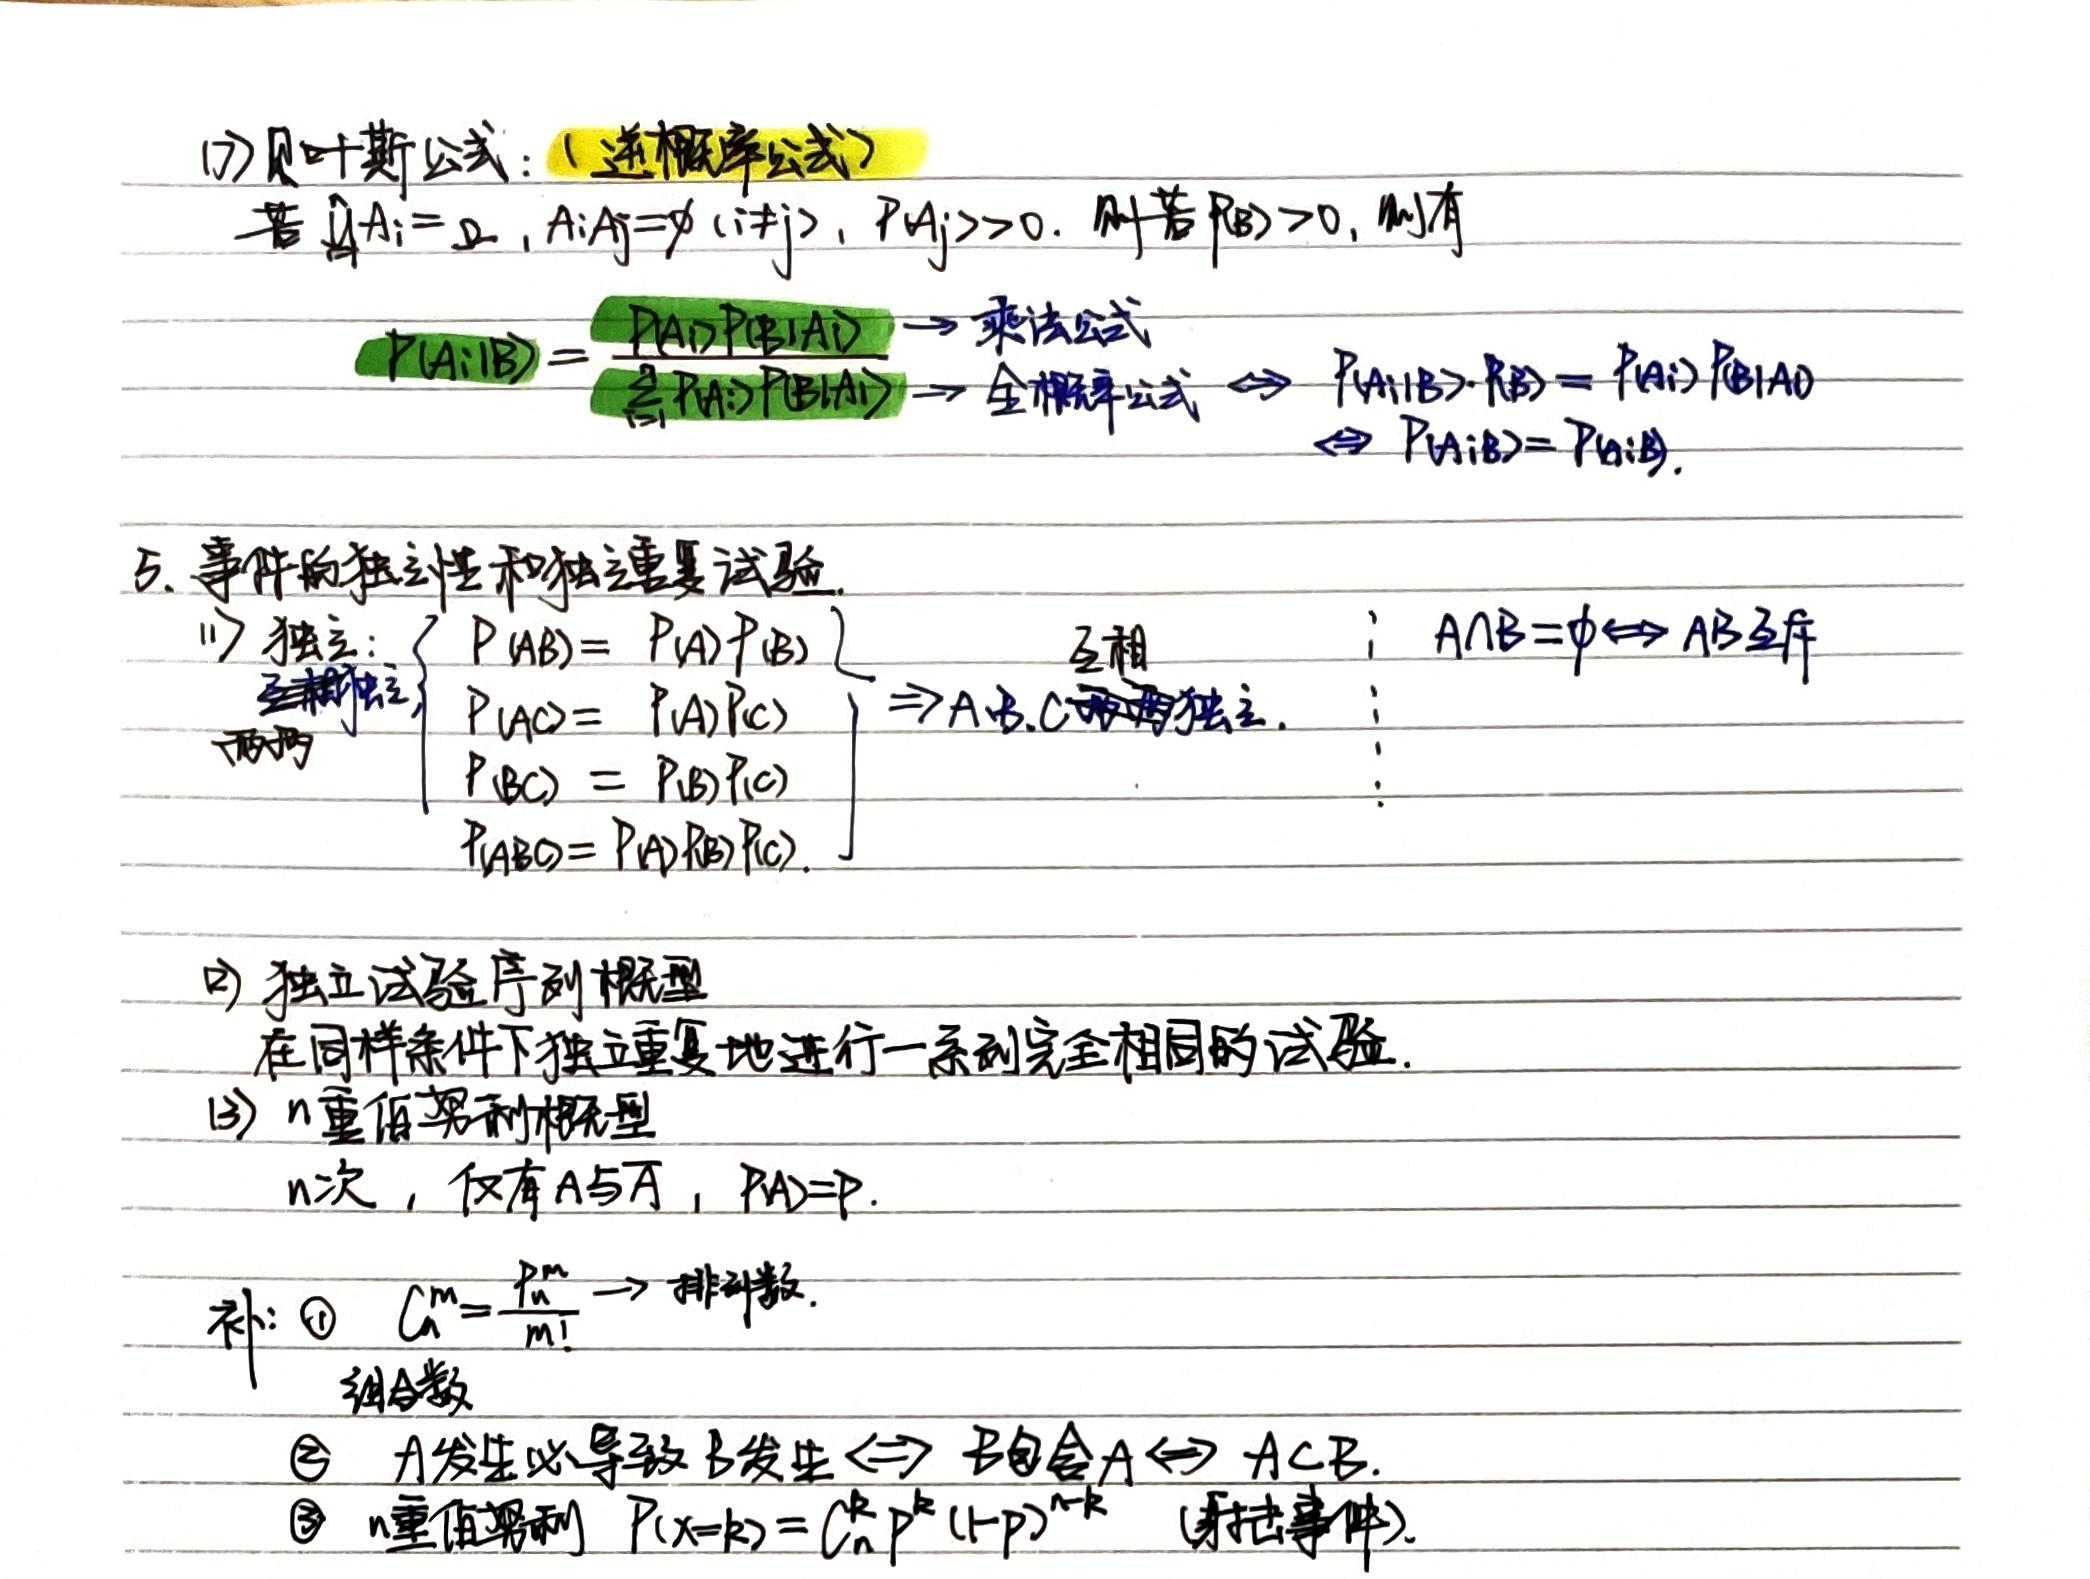 (7) 贝叶斯公式：（逆概率公式）
若 ⋃ⁿᵢ₌₁ Ai = Ω , AiAj=∅ (i≠j) , P(Aj)>0. 则若 P(B)>0, 则有
P(Ai|B) = P(Ai)P(B|Ai) → 乘法公式
∑ⁿᵢ₌₁ P(Ai)P(B|Ai) → 全概率公式 ⇔ P(Ai|B)·P(B) = P(Ai)P(B|Ai)
⇔ P(AiB) = P(AiB).
5. 事件的独立性和独立重复试验.
(1) 独立: { P(AB) = P(A)P(B)
互相独立, 两两
P(AC) = P(A)P(C)
P(BC) = P(B)P(C)
P(ABC) = P(A)P(B)P(C).
互相
⇒ A.B.C 两两独立.
A∩B=∅ ⇔ AB互斥
(2) 独立试验序列概型
在同样条件下独立重复地进行一系列完全相同的试验.
(3) n重伯努利概型
n次 , 仅有A与Ā , P(A)=p.
补: ① Cₙᵐ = Pₙᵐ / m! → 排列数.
组合数
② A发生必导致B发生 ⇔ B包含A ⇔ A⊂B.
③ n重伯努利 P(x=k) = Cₙᵏ pᵏ (1-p)ⁿ⁻ᵏ (射击事件).